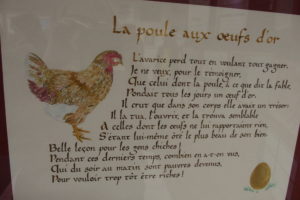 La poule aux œufs d'or
L'avarice perd tout en voulant tout gagner.
Je ne veux, pour le témoigner,
Que celui dont la poule, à ce que dit la fable,
Pondait tous les jours un œuf d'or.
Il crut que dans son corps elle avait un trésor:
Il la tua, l'ouvrit, et la trouva semblable
A celles dont les œufs ne lui rapportaient rien,
S'étant lui-même ôté le plus beau de son bien.
Belle leçon pour les gens chiches!
Pendant ces derniers temps, combien en a-t-on vus,
Qui du soir au matin sont pauvres devenus,
Pour vouloir trop tôt être riches!